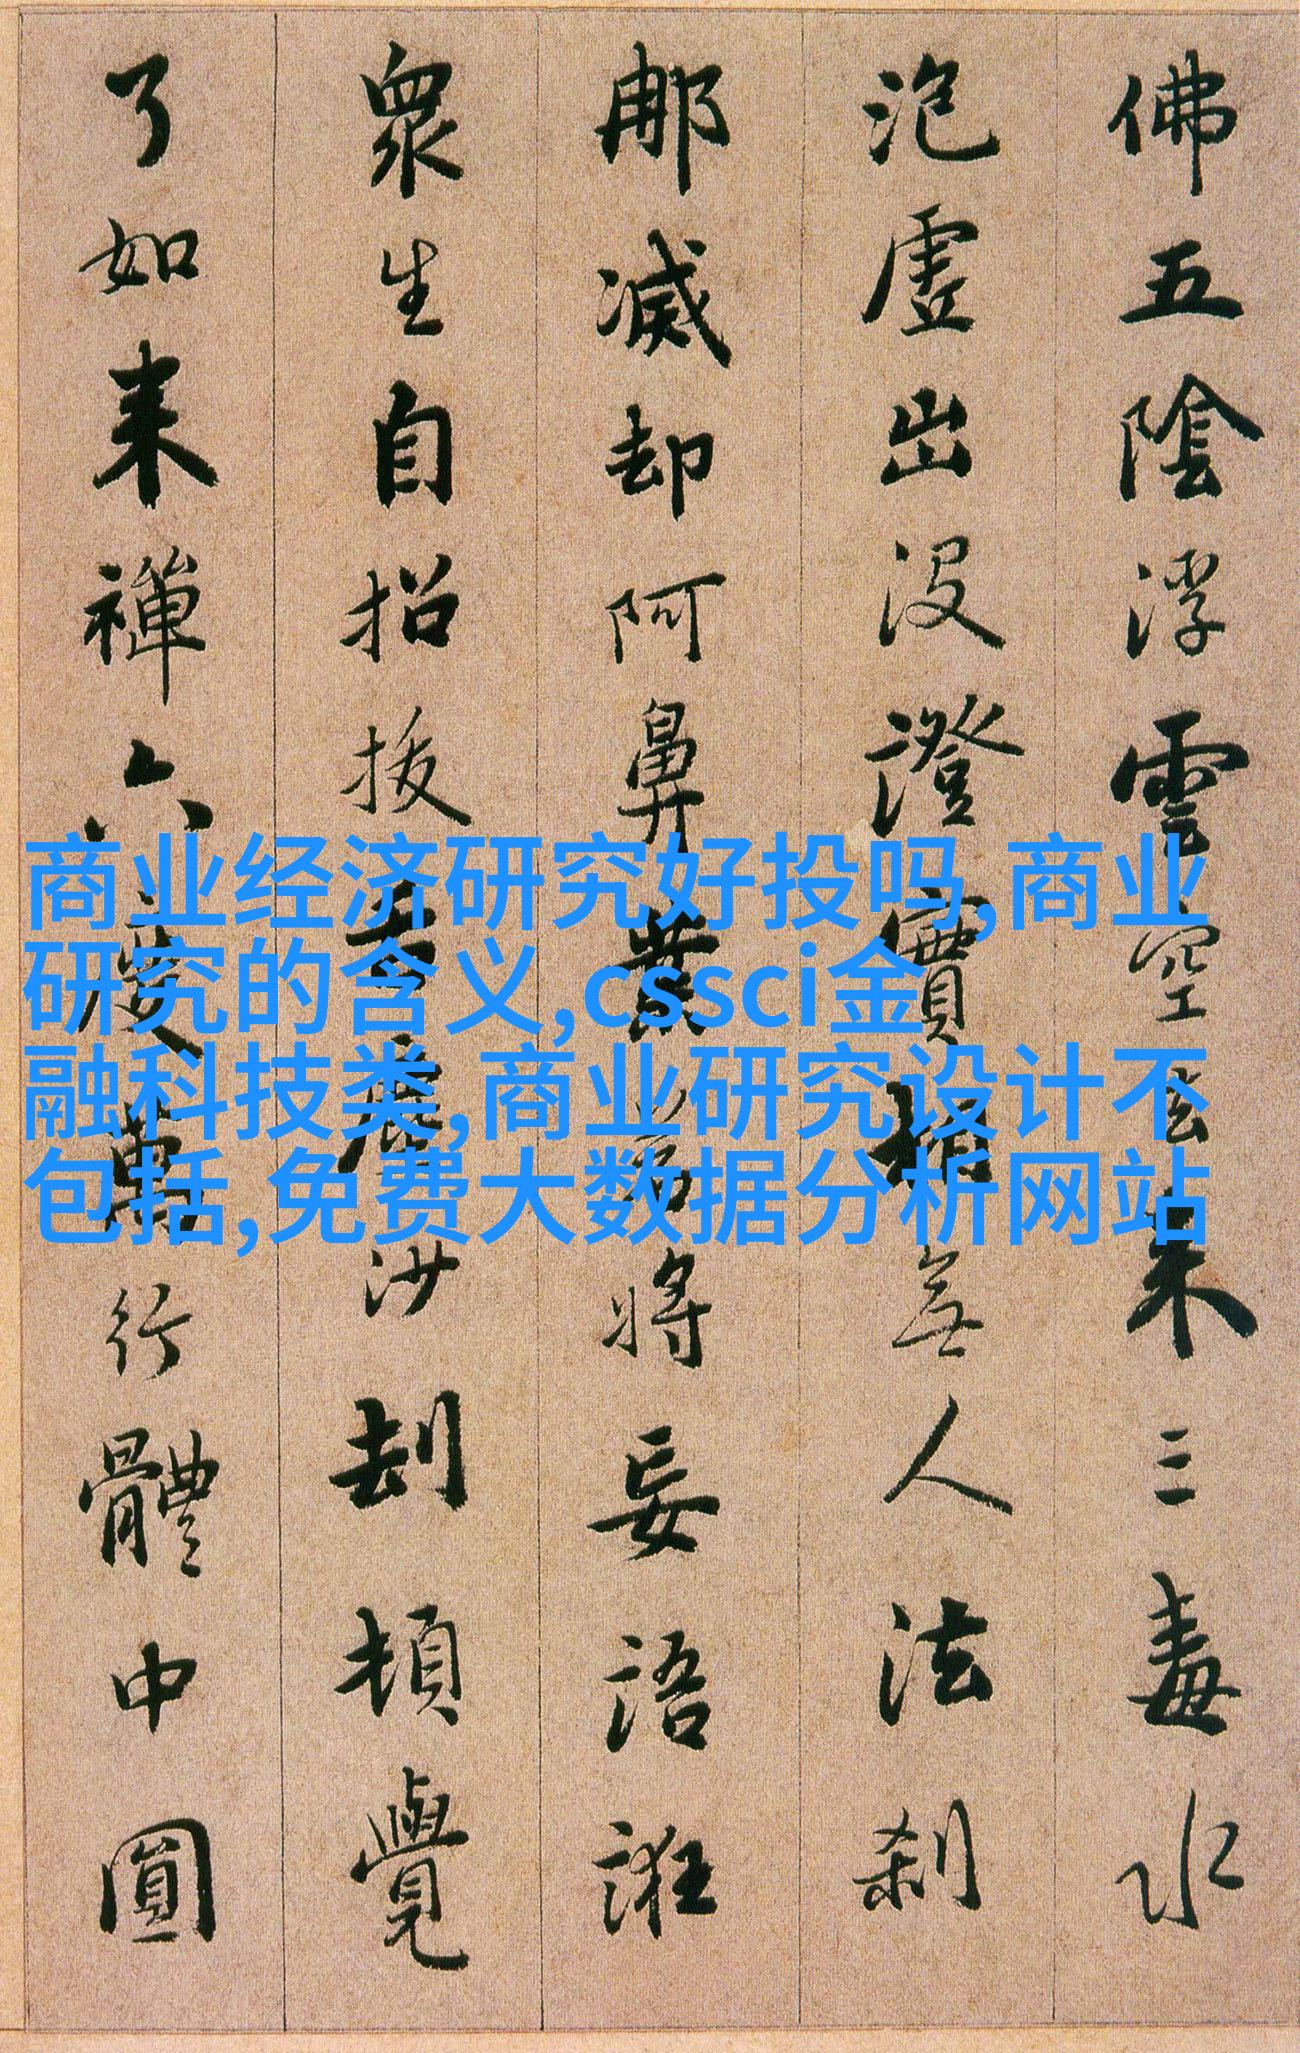 佛五陰浮雲空去来三毒水
泡虛出没證實相無人法刹
那滅却阿鼻業若將妄語誑
衆生自招拔舌塵沙劫頓覺
了如来禪六度萬行體中圓
商业经济研究好投吗,商业
研究的含义,cssci金
融科技类,商业研究设计不
包括,免费大数据分析网站